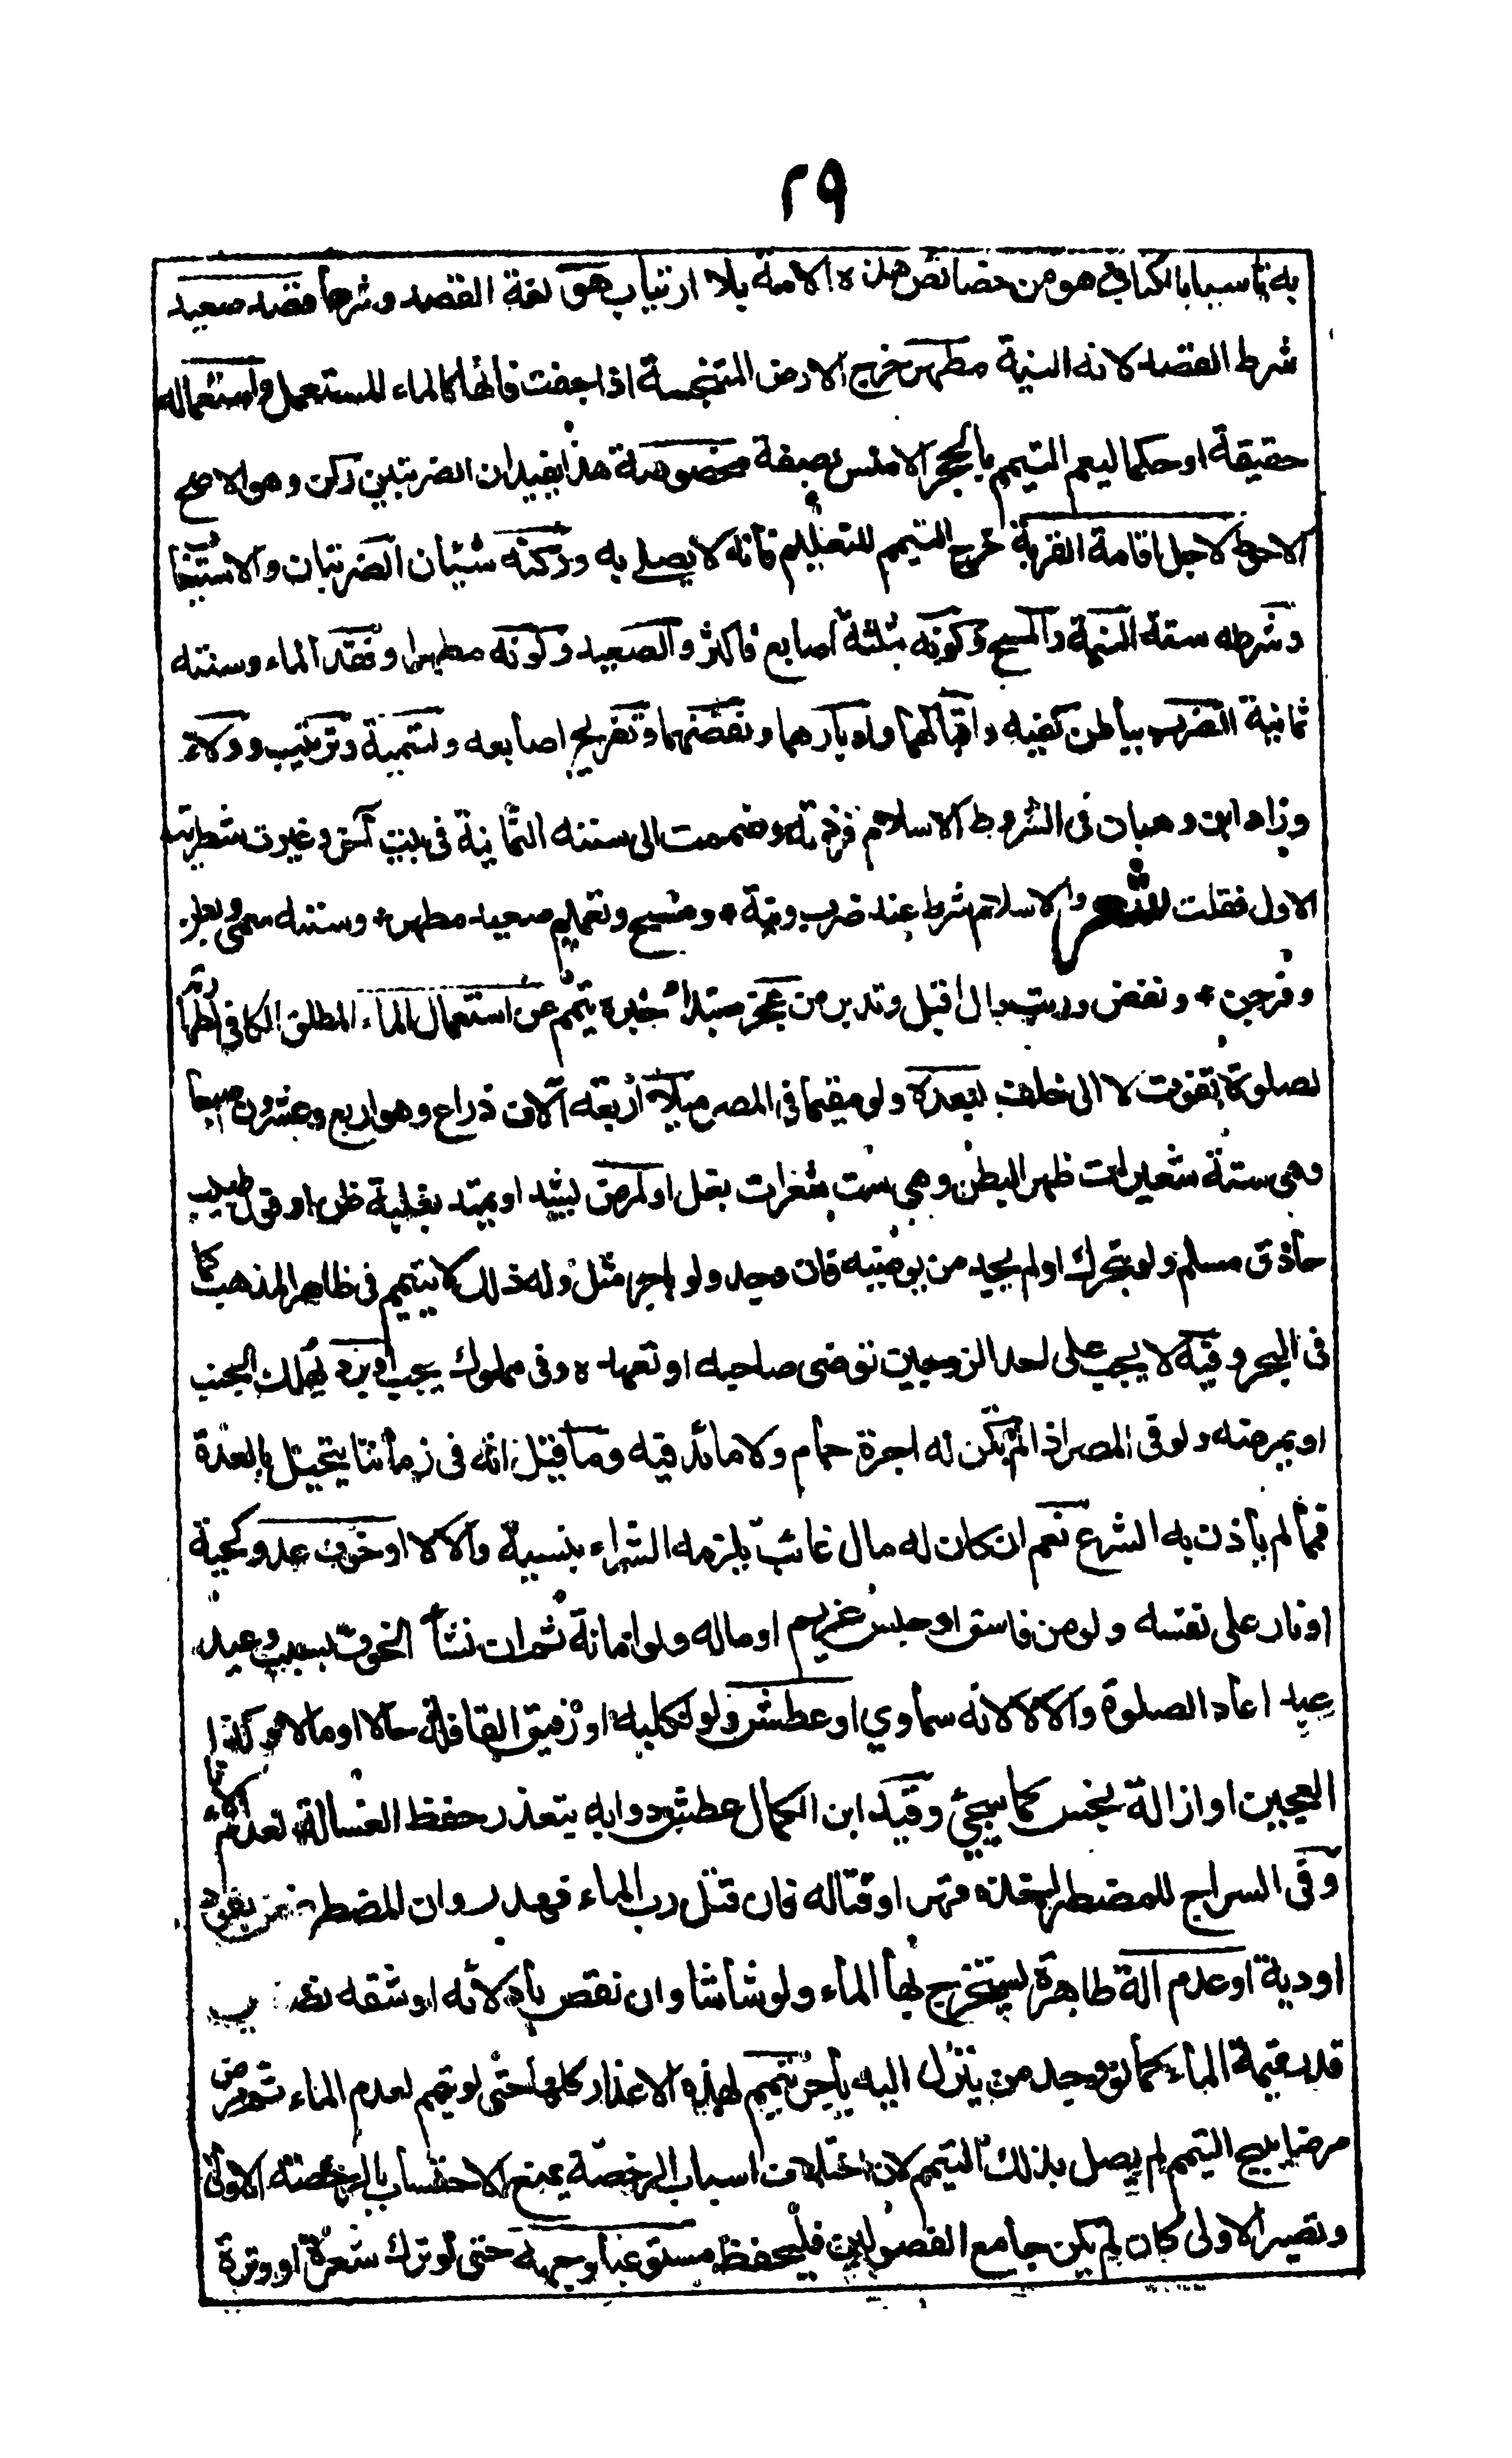 ٢٩
به تأسيا بالكتاب هو من خصائص هذه الامة بلا ارتياب هو لغة القصد وشرعا قصد صعيد
شرط القصد لانه النية مطهر خرج الارض المتنجسة اذا جفت فانها كالماء المستعمل واستعماله
حقيقة او حكما ليعم التيمم بالحجر الاملس بصفة مخصوصة هذا يفيد ان الضربتين ركن وهو الاصح
الاحوط لاجل اقامة القربة خرج التيمم للتعليم فانه لا يصلي به وركنه شيئان الضربتان والاستيعاب
وشرطه ستة النية والمسح وكونه بثلثة اصابع فاكثر والصعيد وكونه مطهرا وفقد الماء وسننه
ثمانية الضرب بباطن كفيه واقبالهما وادبارهما ونفضهما وتفريج اصابعه وتسمية وترتيب وولاء
وزاد ابن وهبان في الشروط الاسلام فزدته وضممت الى سننه الثمانية في بيت آخر وغيرت شطر بيته
الاول فقلت شعر والاسلام شرط عند ضرب ونية * ومسح وتعميم صعيد مطهر * وسننه سمى وبطن
وفرجن * ونفض ورتب وال اقبل وتدبر من عجز مبتدأ خبره تيمم عن استعمال الماء المطلق الكافي لطهارته
لصلوة تفوت لا الى خلف لبعده ولو مقيما في المصر ميلا اربعة آلاف ذراع وهو اربع وعشرون اصبعا
وهي ستة شعيرات ظهر البطن وهي ست شعرات بغل او لمرض يشتد او يمتد بغلبة ظن او قول طبيب
حاذق مسلم ولو بتحرك او لم يجد من يوضئه فان وجد ولو باجر مثل وله ذلك لا يتيمم في ظاهر المذهب كما
في البحر وفيه لا يجب على احد الزوجين توضي صاحبه او تعهده وفي مملوك يجب او برد يهلك الجنب
او يمرضه ولو في المصر اذا لم يكن له اجرة حمام ولا ما يدفيه وما قيل انه في زماننا يتحيل بالعدة
فمما لم يأذن به الشرع نعم ان كان له مال غائب يلزمه الشراء بنسيئة والا لا او خوف عدو كحية
او نار على نفسه ولو من فاسق او حبس غريم او ماله ولو امانة ثم ان نشأ الخوف بسبب وعيد
عبد اعاد الصلوة والا لا لانه سماوي او عطش ولو لكلبه او رفيق القافلة حالا او مالا وكذا
العجين او ازالة نجس كما سيجئ وقيد ابن الكمال عطش دوابه بتعذر حفظ الغسالة لعدم الاناء
وفي السراج للمضطر اخذه قهرا وقتاله فان قتل رب الماء فهدر وان المضطر ضمن بقود
او دية او عدم آلة طاهرة يستخرج بها الماء ولو شاشا وان نقص بادلائه او شقه
قدر قيمة الماء كما لو وجد من ينزل اليه باجر تيمم لهذه الاعذار كلها حتى لو تيمم لعدم الماء ثم مرض
مرضا يبيح التيمم لم يصل بذلك التيمم لان اختلاف اسباب الرخصة يمنع الاحتساب بالرخصة الاولى
وتصير الاولى كان لم يكن جامع الفصولين فليحفظ مستوعبا وجهه حتى لو ترك شعرة او وترة